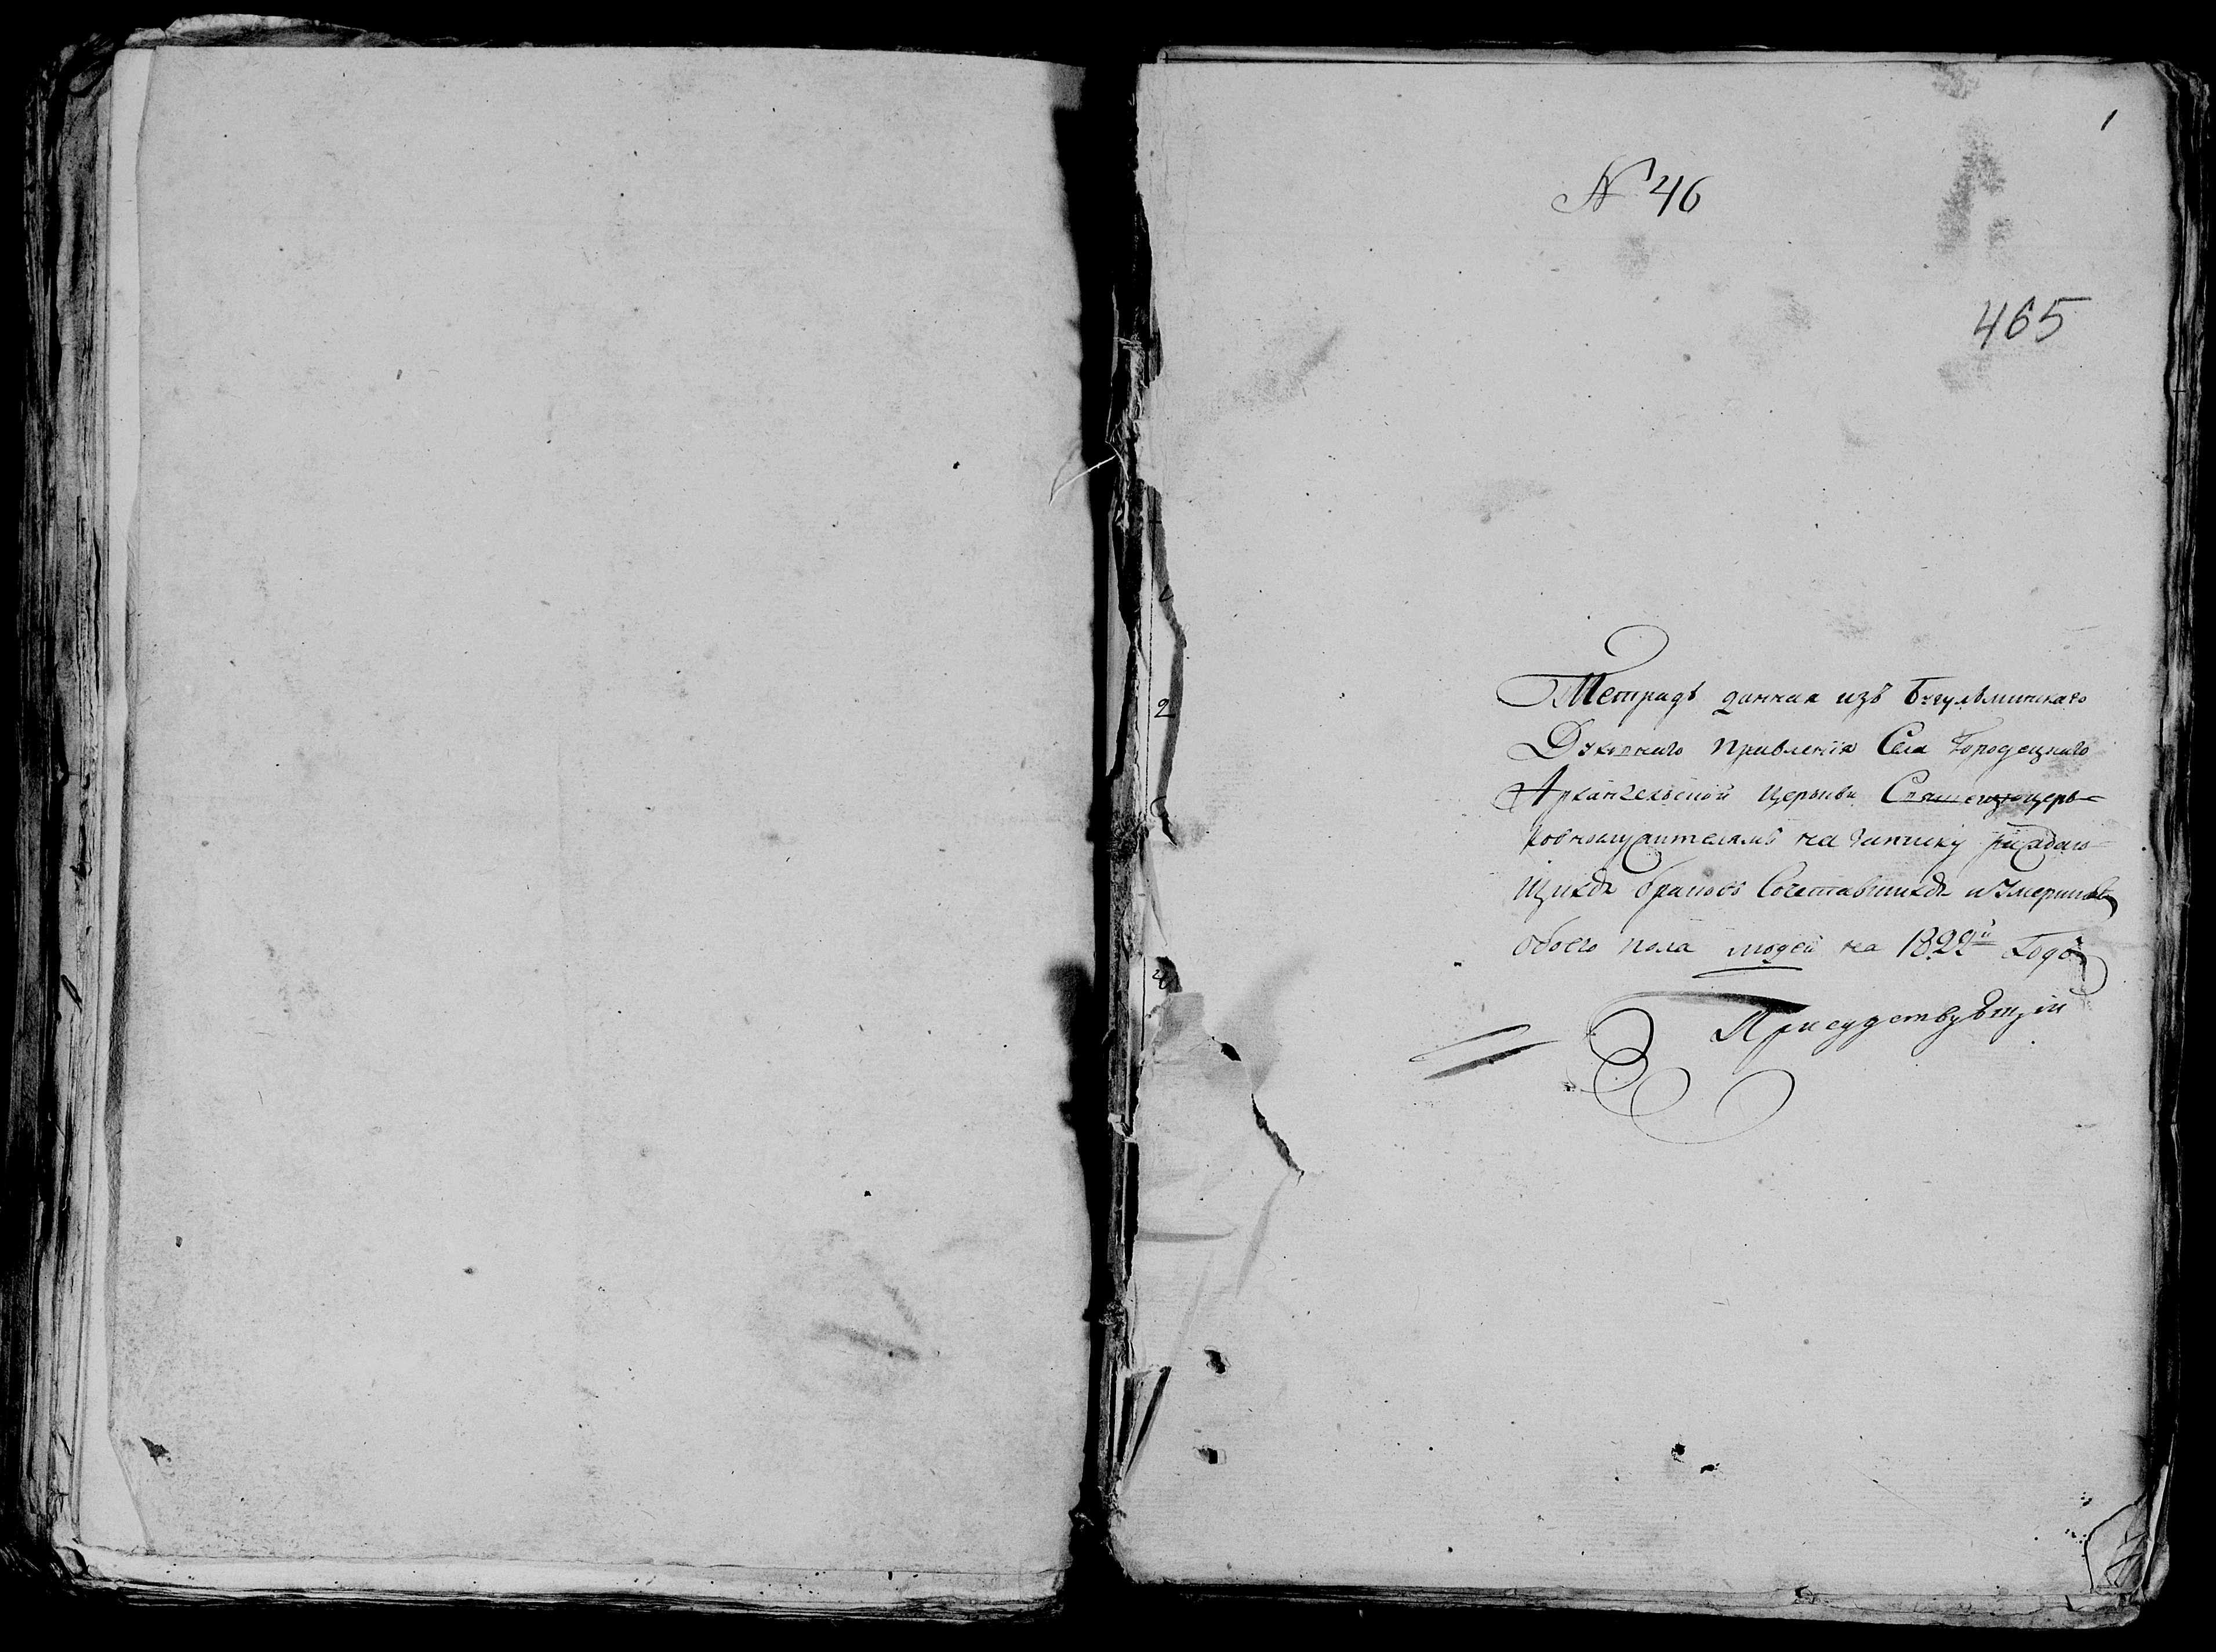 1
№ 46
465
Тетрадь данная изъ Бугульминскаго
Духовнаго Правленія Села Городецкаго
Архангельской Церькви Священноцерь-
ковнослужителямъ на записку раждаю-
щихся бракомъ Сочетавшихся и Умершихъ
обоего пола людей на 1822й Годъ
Присудствующій
2